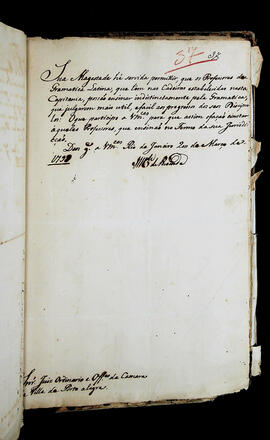 57 37
Sua Magestade hé servida permittir, que os Professores de
Gramatica Latina, que tem nos Cadeiras estabelecidas nesta
Capitania, possão ensinar indistinctamente pela Gramatica,
que julgarem mais util, e facil ao progresso dos seus Discipu-
los: O que participo a Vm.ces para que assim o fação constar
áquelles Professores, que ensinão no Termo da sua Jurisdic-
ção.
Deos g.e a Vm.ces Rio de Janeiro 20 de Março de
Snr.s Juiz Ordinario e Off.es da Camara
Villa de Porto alegre